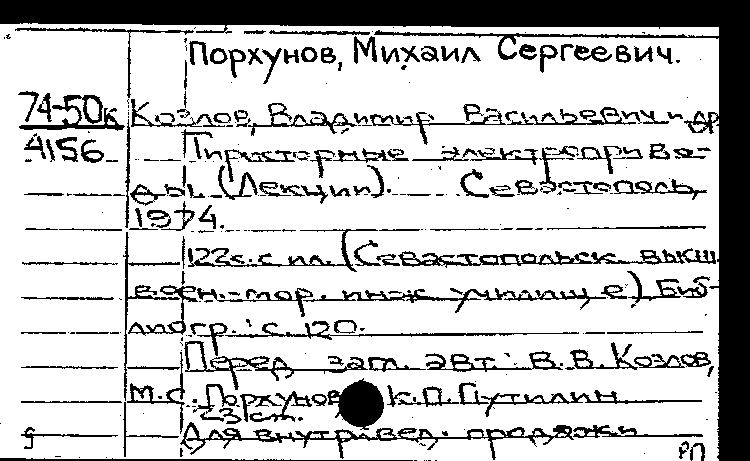 Порхунов, Михаил Сергеевич.
74-50к Козлов, Владимир Васильевич и др
4156 Тиристорные электроприво-
ды. (Лекции). Севастополь,
1974.
122с. с ил. (Севастопольск высш
воен.-мор. инж училище) Биб-
лиогр.: с. 120.
Перед загл. авт.: В.В. Козлов,
М.С. Порхунов К.П. Путилин
23 cm.
Для внутривед. продажи